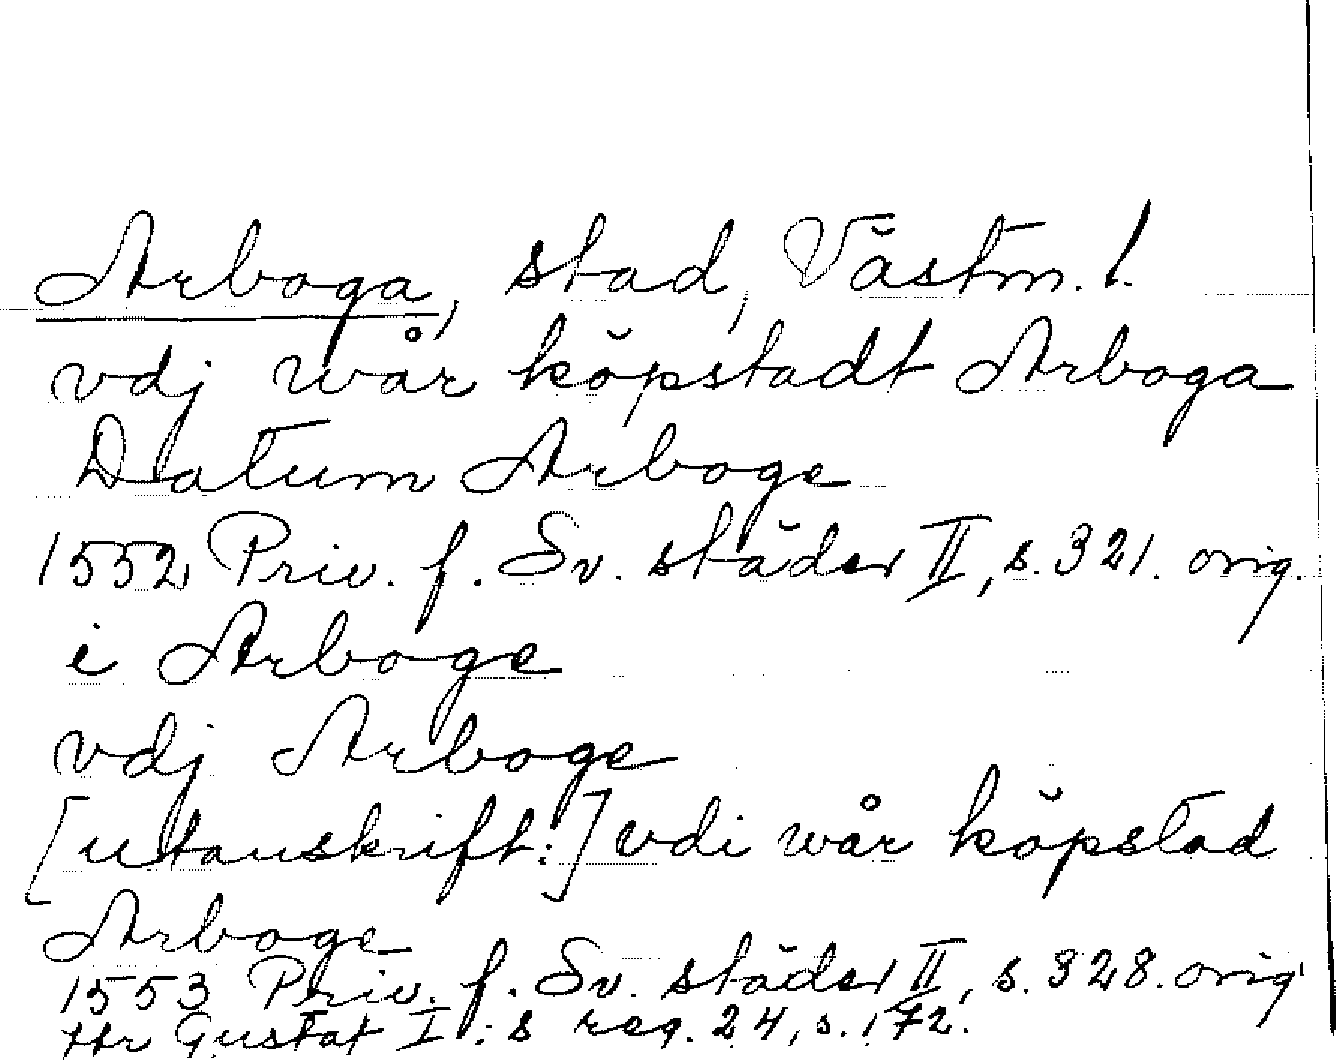 Arboga, stad, Västm. l.
vdj wår köpstadt Arboga
Datum Arboge
1552 Priv. f. Sv. städer II, s. 321. orig.
i Arboge
vdj Arboge
[utanskrift:] vdi wår köpstad
Arboge
1553 Priv. f. Sv. städer II, s. 328. orig
Gustaf I:s reg. 24, s. 172.